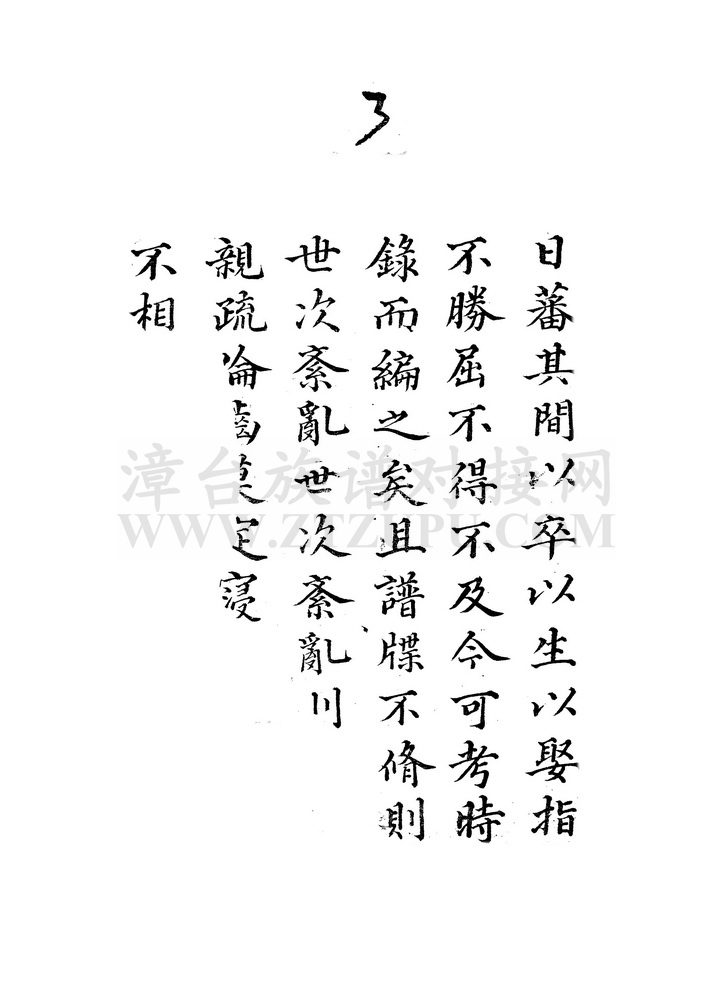 3
日蕃其間以卒以生以娶指
不勝屈不得不及今可考時
錄而編之矣且譜牒不脩則
世次紊亂世次紊亂
親疏
不相
漳台族谱对接网
WWW.ZTZUPU.COM